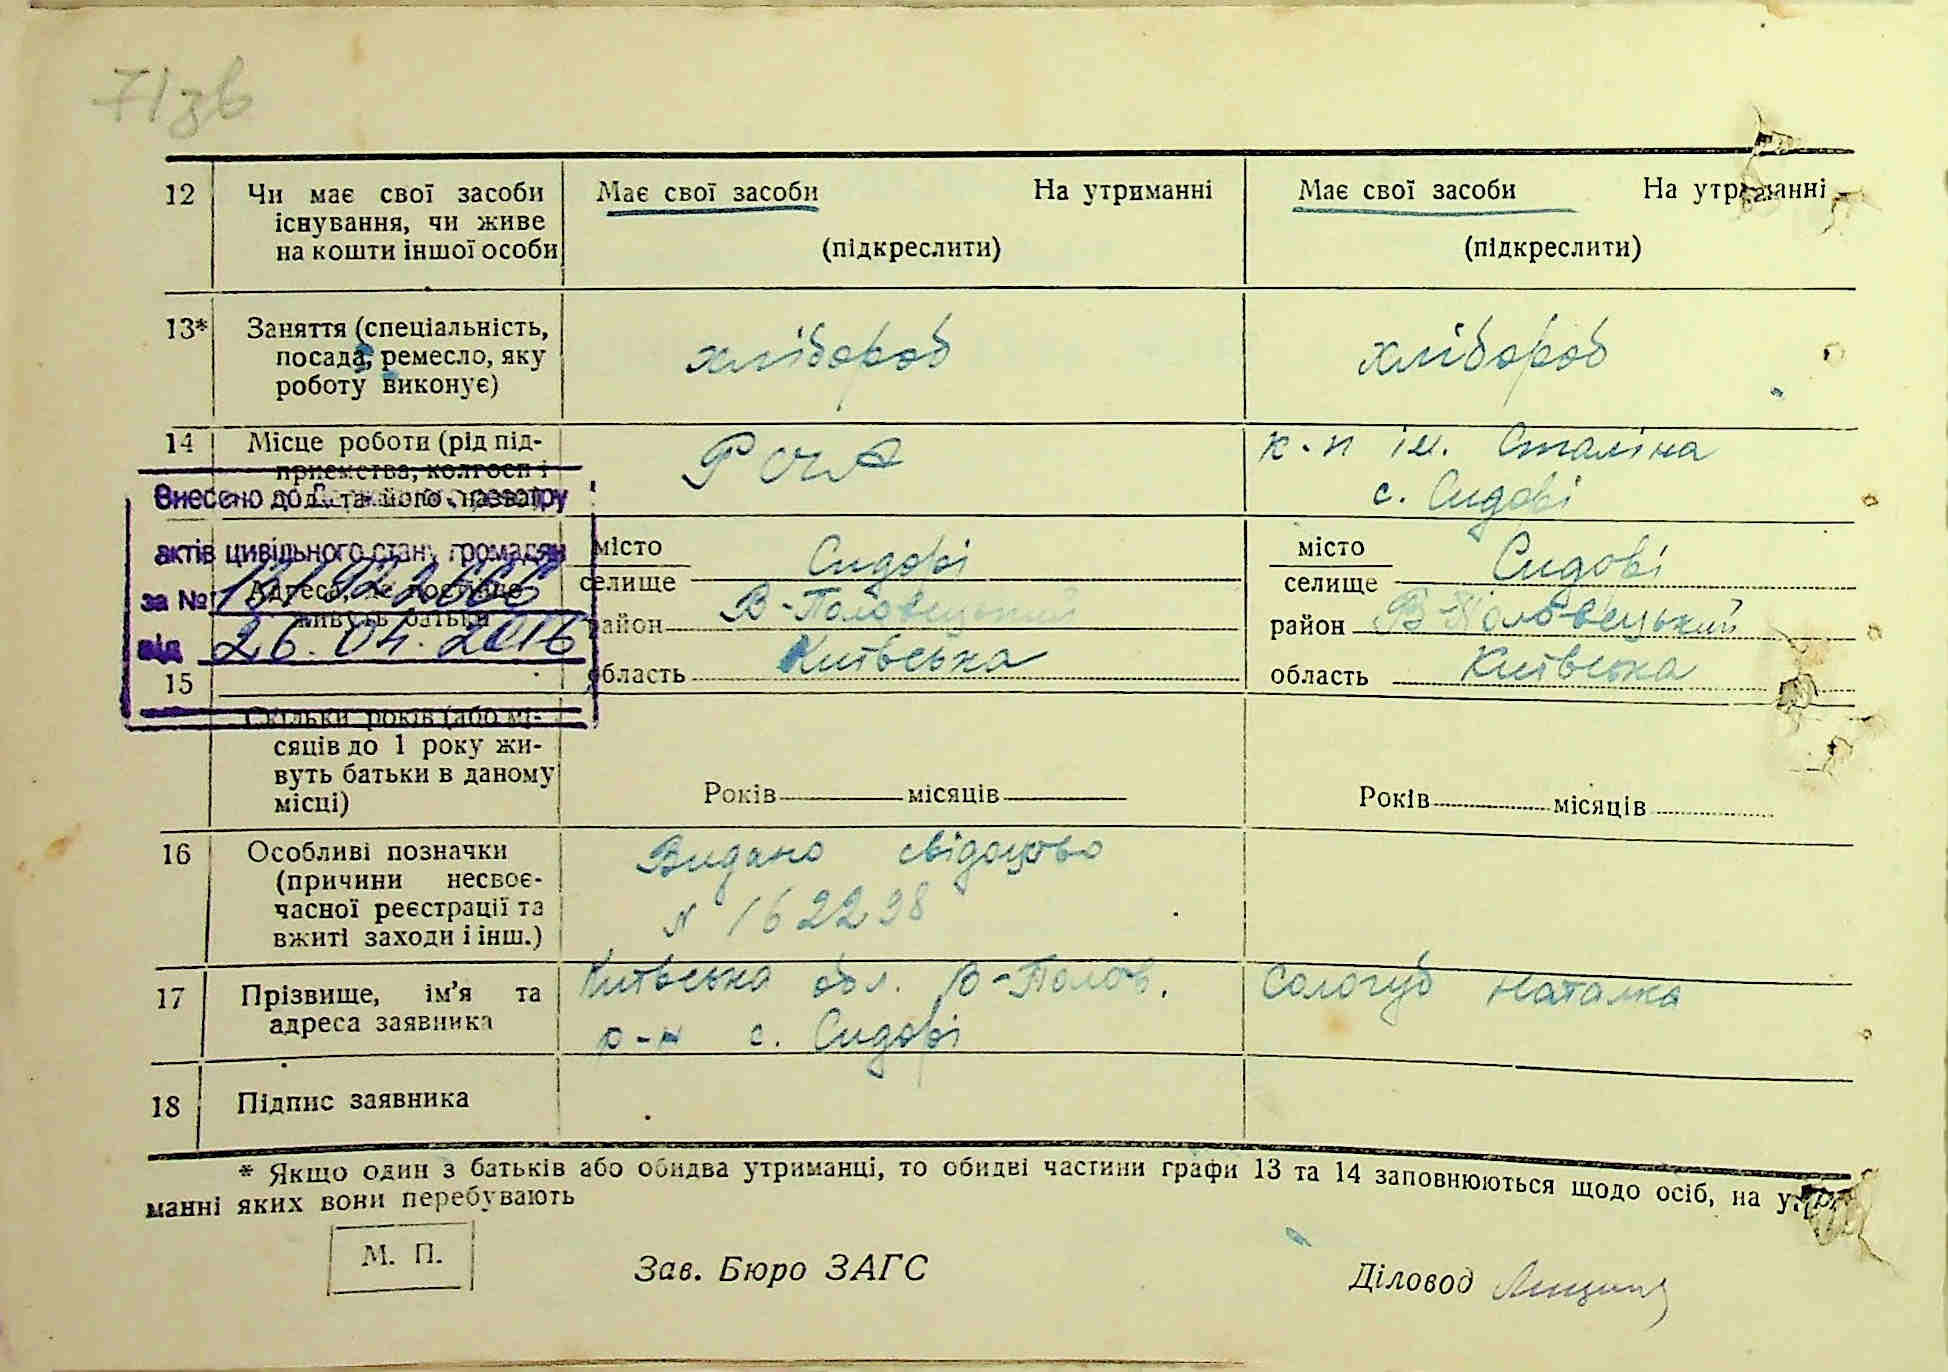 71зв
12 Чи має свої засоби існування, чи живе на кошти іншої особи
Має свої засоби На утриманні
(підкреслити)
Має свої засоби На утриманні
(підкреслити)
13* Заняття (спеціальність,
посада, ремесло, яку
роботу виконує)
хлібороб
хлібороб
14 Місце роботи (рід під-
приємства, колгосп і
та його назва)
РСЧА
к-п ім. Сталіна
с. Сидорі
Внесено до Державного реєстру
актів цивільного стану громадян
за №
від 26.04.2016
Адреса, де постійно
живуть батьки
місто
селище Сидорі
район В-Половецький
область Київська
місто
селище Сидорі
район В-Половецький
область Київська
15
Скільки років (або мі-
сяців до 1 року жи-
вуть батьки в даному
місці)
Років місяців
Років місяців
16 Особливі позначки
(причини несвоє-
часної реєстрації та
вжиті заходи і інш.)
Видано свідоцтво
N 162298
17 Прізвище, ім’я та
адреса заявника
Київська обл. В-Полов.
р-н с. Сидорі
Сологуб Наталка
18 Підпис заявника
* Якщо один з батьків або обидва утриманці, то обидві частини графи 13 та 14 заповнюються щодо осіб, на утри-
манні яких вони перебувають
М. П.
Зав. Бюро ЗАГС
Діловод